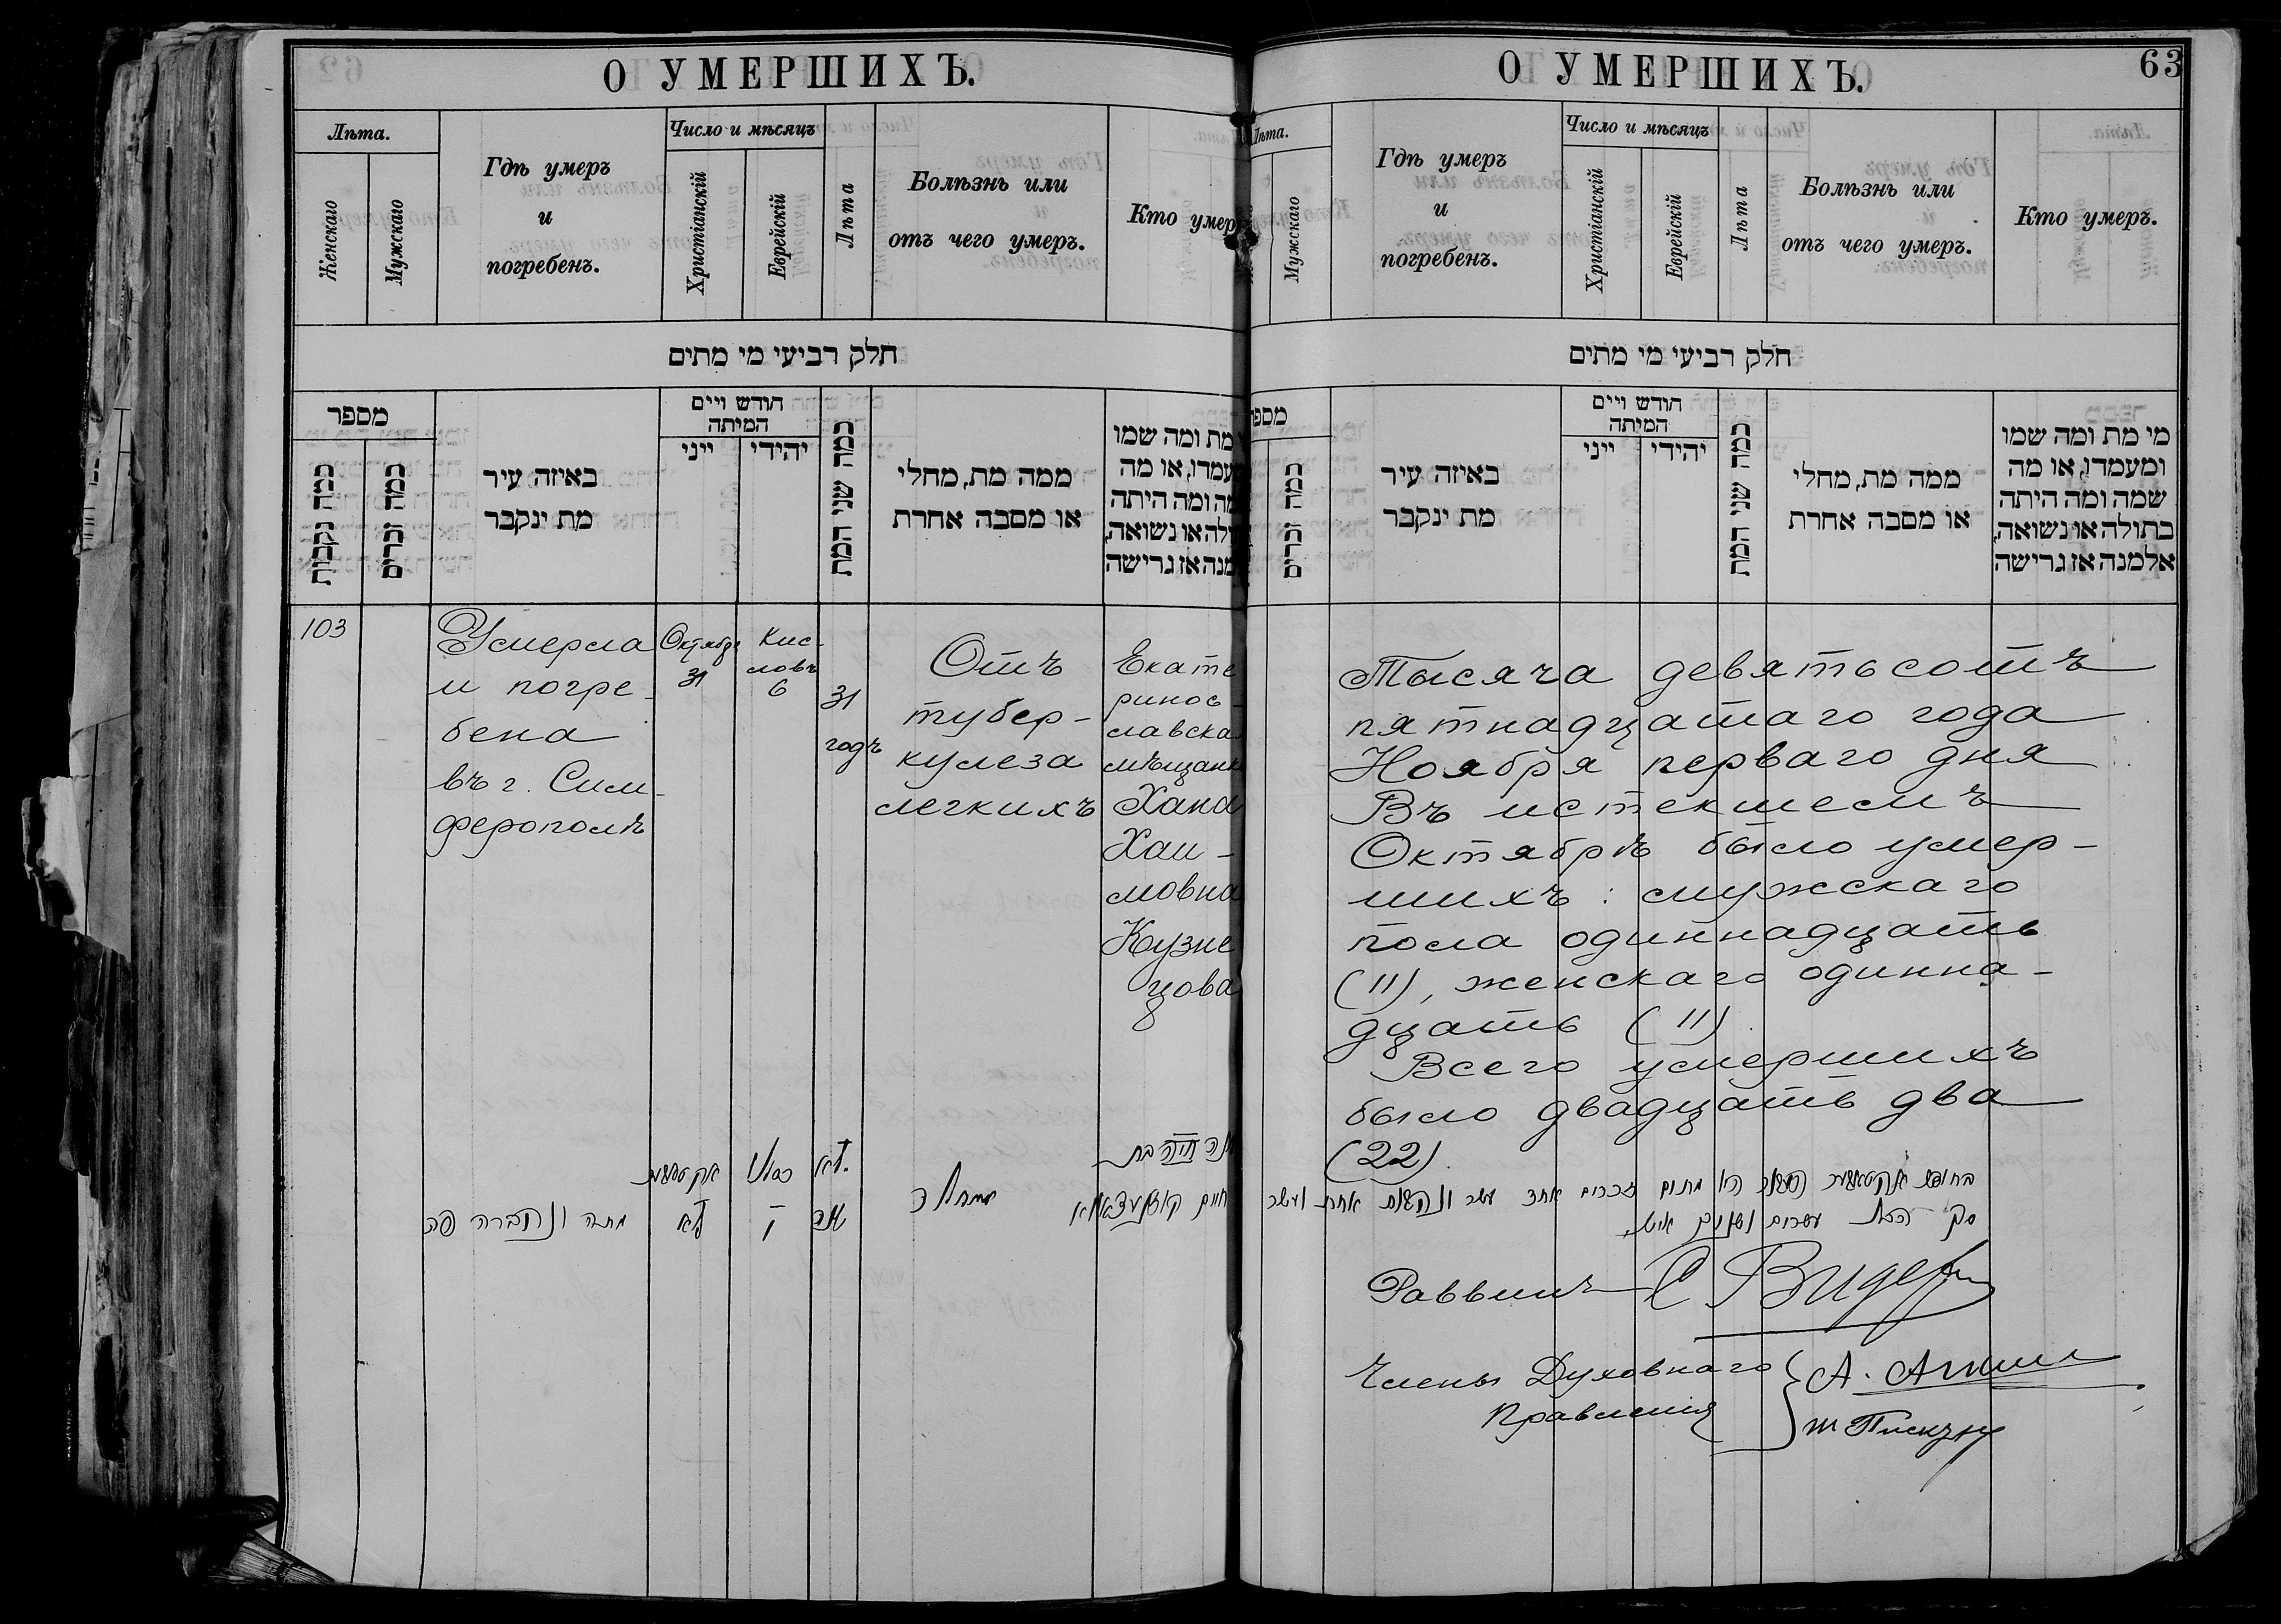 О УМЕРШИХЪ.
Лѣта.
Женскаго
Мужскаго
Гдѣ умеръ
и
погребенъ.
Число и мѣсяцъ
Христіанскій
Еврейскій
Лѣта
Болѣзнь или
отъ чего умеръ.
Кто умеръ
חלק רביעי מי מתים
מספר
כמה נקבות
כמה זכרים
באיזה עיר
מת ינקבר
חודש ויים
המיתה
ייני
יהידי
כמה שני המת
ממה מת, מחלי
או מסבה אחרת
מת ומה שמו
עמדו, או מה
מה ומה היתה
ולה או נשואה,
מנה אז גרישה
103
Умерла
и погре-
бена
въ г. Сим-
ферополѣ
Октября
31
Кис-
ловъ
6
31
годъ
Отъ
тубер-
кулеза
легкихъ
Екате
ринос-
лавска
мѣщанк
Хана
Хаи-
мовна
Кузне
цова
חיה בת
חיים
ל״א
ו
ל״א
מתה ונקברה פה
63
О УМЕРШИХЪ.
Лѣта.
Мужскаго
Гдѣ умеръ
и
погребенъ.
Число и мѣсяцъ
Христіанскій
Еврейскій
Лѣта
Болѣзнь или
отъ чего умеръ.
Кто умеръ.
חלק רביעי מי מתים
מספ
כמה זכרים
באיזה עיר
מת ינקבר
חודש ויים
המיתה
ייני
יהידי
כמה שני המת
ממה מת, מחלי
או מסבה אחרת
מי מת ומה שמו
ומעמדו, או מה
שמה ומה היתה
בתולה או נשואה,
אלמנה אז גרישה
Тысяча девятьсотъ
пятнадцатаго года
Ноября перваго дня
Въ истекшемъ
Октябрѣ было умер-
шихъ: мужскаго
пола одиннадцать
(11), женскаго одинна-
дцать (11)
Всего умершихъ
было двадцать два
(22).
מתים זכרים אחד עשר ונקבות אחת עשר
סך הכל עשרים ושנים איש
Раввинъ С Видер
Члены Духовнаго
Правления
А.